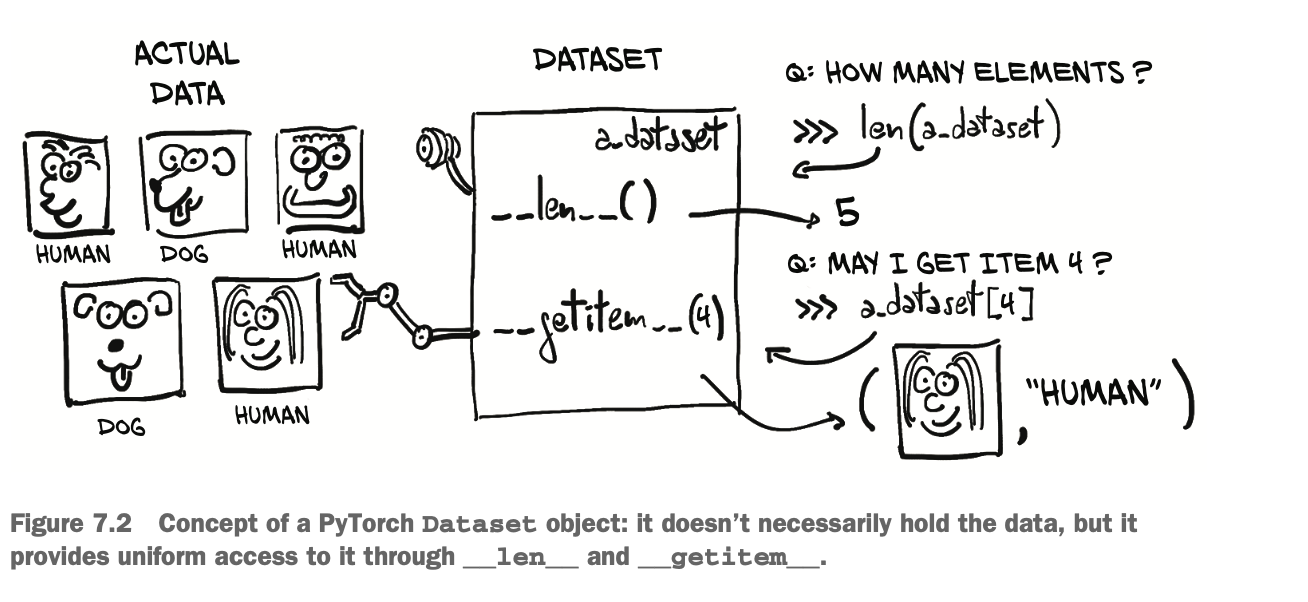 ACTUAL
DATA
HUMAN
DOG
HUMAN
DOG
HUMAN
DATASET
a_dataset
__len__()
__getitem__(4)
Q: HOW MANY ELEMENTS?
>>> len(a_dataset)
5
Q: MAY I GET ITEM 4?
>>> a_dataset[4]
( , "HUMAN" )
Figure 7.2 Concept of a PyTorch Dataset object: it doesn't necessarily hold the data, but it
provides uniform access to it through __len__ and __getitem__.